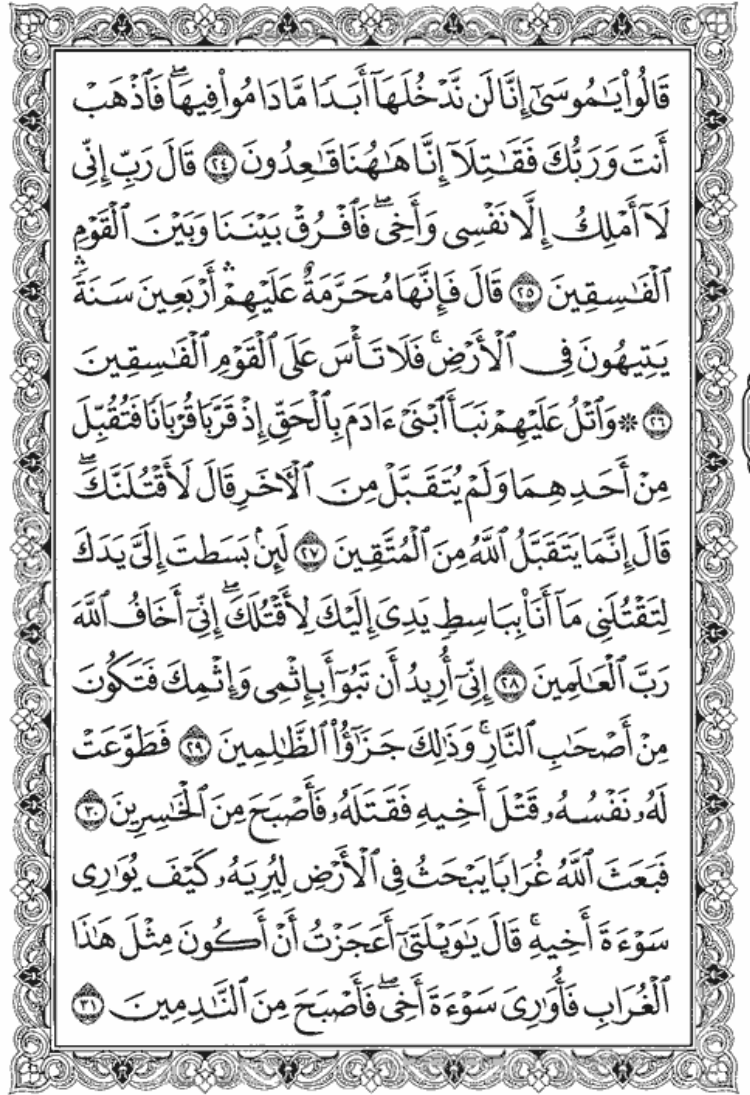 قَالُوا۟ يَـٰمُوسَىٰٓ إِنَّا لَن نَّدْخُلَهَآ أَبَدًا مَّا دَامُوا۟ فِيهَا ۖ فَٱذْهَبْ
أَنتَ وَرَبُّكَ فَقَـٰتِلَآ إِنَّا هَـٰهُنَا قَـٰعِدُونَ ٢٤ قَالَ رَبِّ إِنِّى
لَآ أَمْلِكُ إِلَّا نَفْسِى وَأَخِى ۖ فَٱفْرُقْ بَيْنَنَا وَبَيْنَ ٱلْقَوْمِ
ٱلْفَـٰسِقِينَ ٢٥ قَالَ فَإِنَّهَا مُحَرَّمَةٌ عَلَيْهِمْ ۛ أَرْبَعِينَ سَنَةً ۛ
يَتِيهُونَ فِى ٱلْأَرْضِ ۚ فَلَا تَأْسَ عَلَى ٱلْقَوْمِ ٱلْفَـٰسِقِينَ
٢٦ ۞ وَٱتْلُ عَلَيْهِمْ نَبَأَ ٱبْنَىْ ءَادَمَ بِٱلْحَقِّ إِذْ قَرَّبَا قُرْبَانًا فَتُقُبِّلَ
مِنْ أَحَدِهِمَا وَلَمْ يُتَقَبَّلْ مِنَ ٱلْـَٔاخَرِ قَالَ لَأَقْتُلَنَّكَ ۖ
قَالَ إِنَّمَا يَتَقَبَّلُ ٱللَّهُ مِنَ ٱلْمُتَّقِينَ ٢٧ لَئِنۢ بَسَطتَ إِلَىَّ يَدَكَ
لِتَقْتُلَنِى مَآ أَنَا۠ بِبَاسِطٍ يَدِىَ إِلَيْكَ لِأَقْتُلَكَ ۖ إِنِّىٓ أَخَافُ ٱللَّهَ
رَبَّ ٱلْعَـٰلَمِينَ ٢٨ إِنِّىٓ أُرِيدُ أَن تَبُوٓأَ بِإِثْمِى وَإِثْمِكَ فَتَكُونَ
مِنْ أَصْحَـٰبِ ٱلنَّارِ ۚ وَذَٰلِكَ جَزَٰٓؤُا۟ ٱلظَّـٰلِمِينَ ٢٩ فَطَوَّعَتْ
لَهُۥ نَفْسُهُۥ قَتْلَ أَخِيهِ فَقَتَلَهُۥ فَأَصْبَحَ مِنَ ٱلْخَـٰسِرِينَ ٣٠
فَبَعَثَ ٱللَّهُ غُرَابًا يَبْحَثُ فِى ٱلْأَرْضِ لِيُرِيَهُۥ كَيْفَ يُوَٰرِى
سَوْءَةَ أَخِيهِ ۚ قَالَ يَـٰوَيْلَتَىٰٓ أَعَجَزْتُ أَنْ أَكُونَ مِثْلَ هَـٰذَا
ٱلْغُرَابِ فَأُوَٰرِىَ سَوْءَةَ أَخِى ۖ فَأَصْبَحَ مِنَ ٱلنَّـٰدِمِينَ ٣١